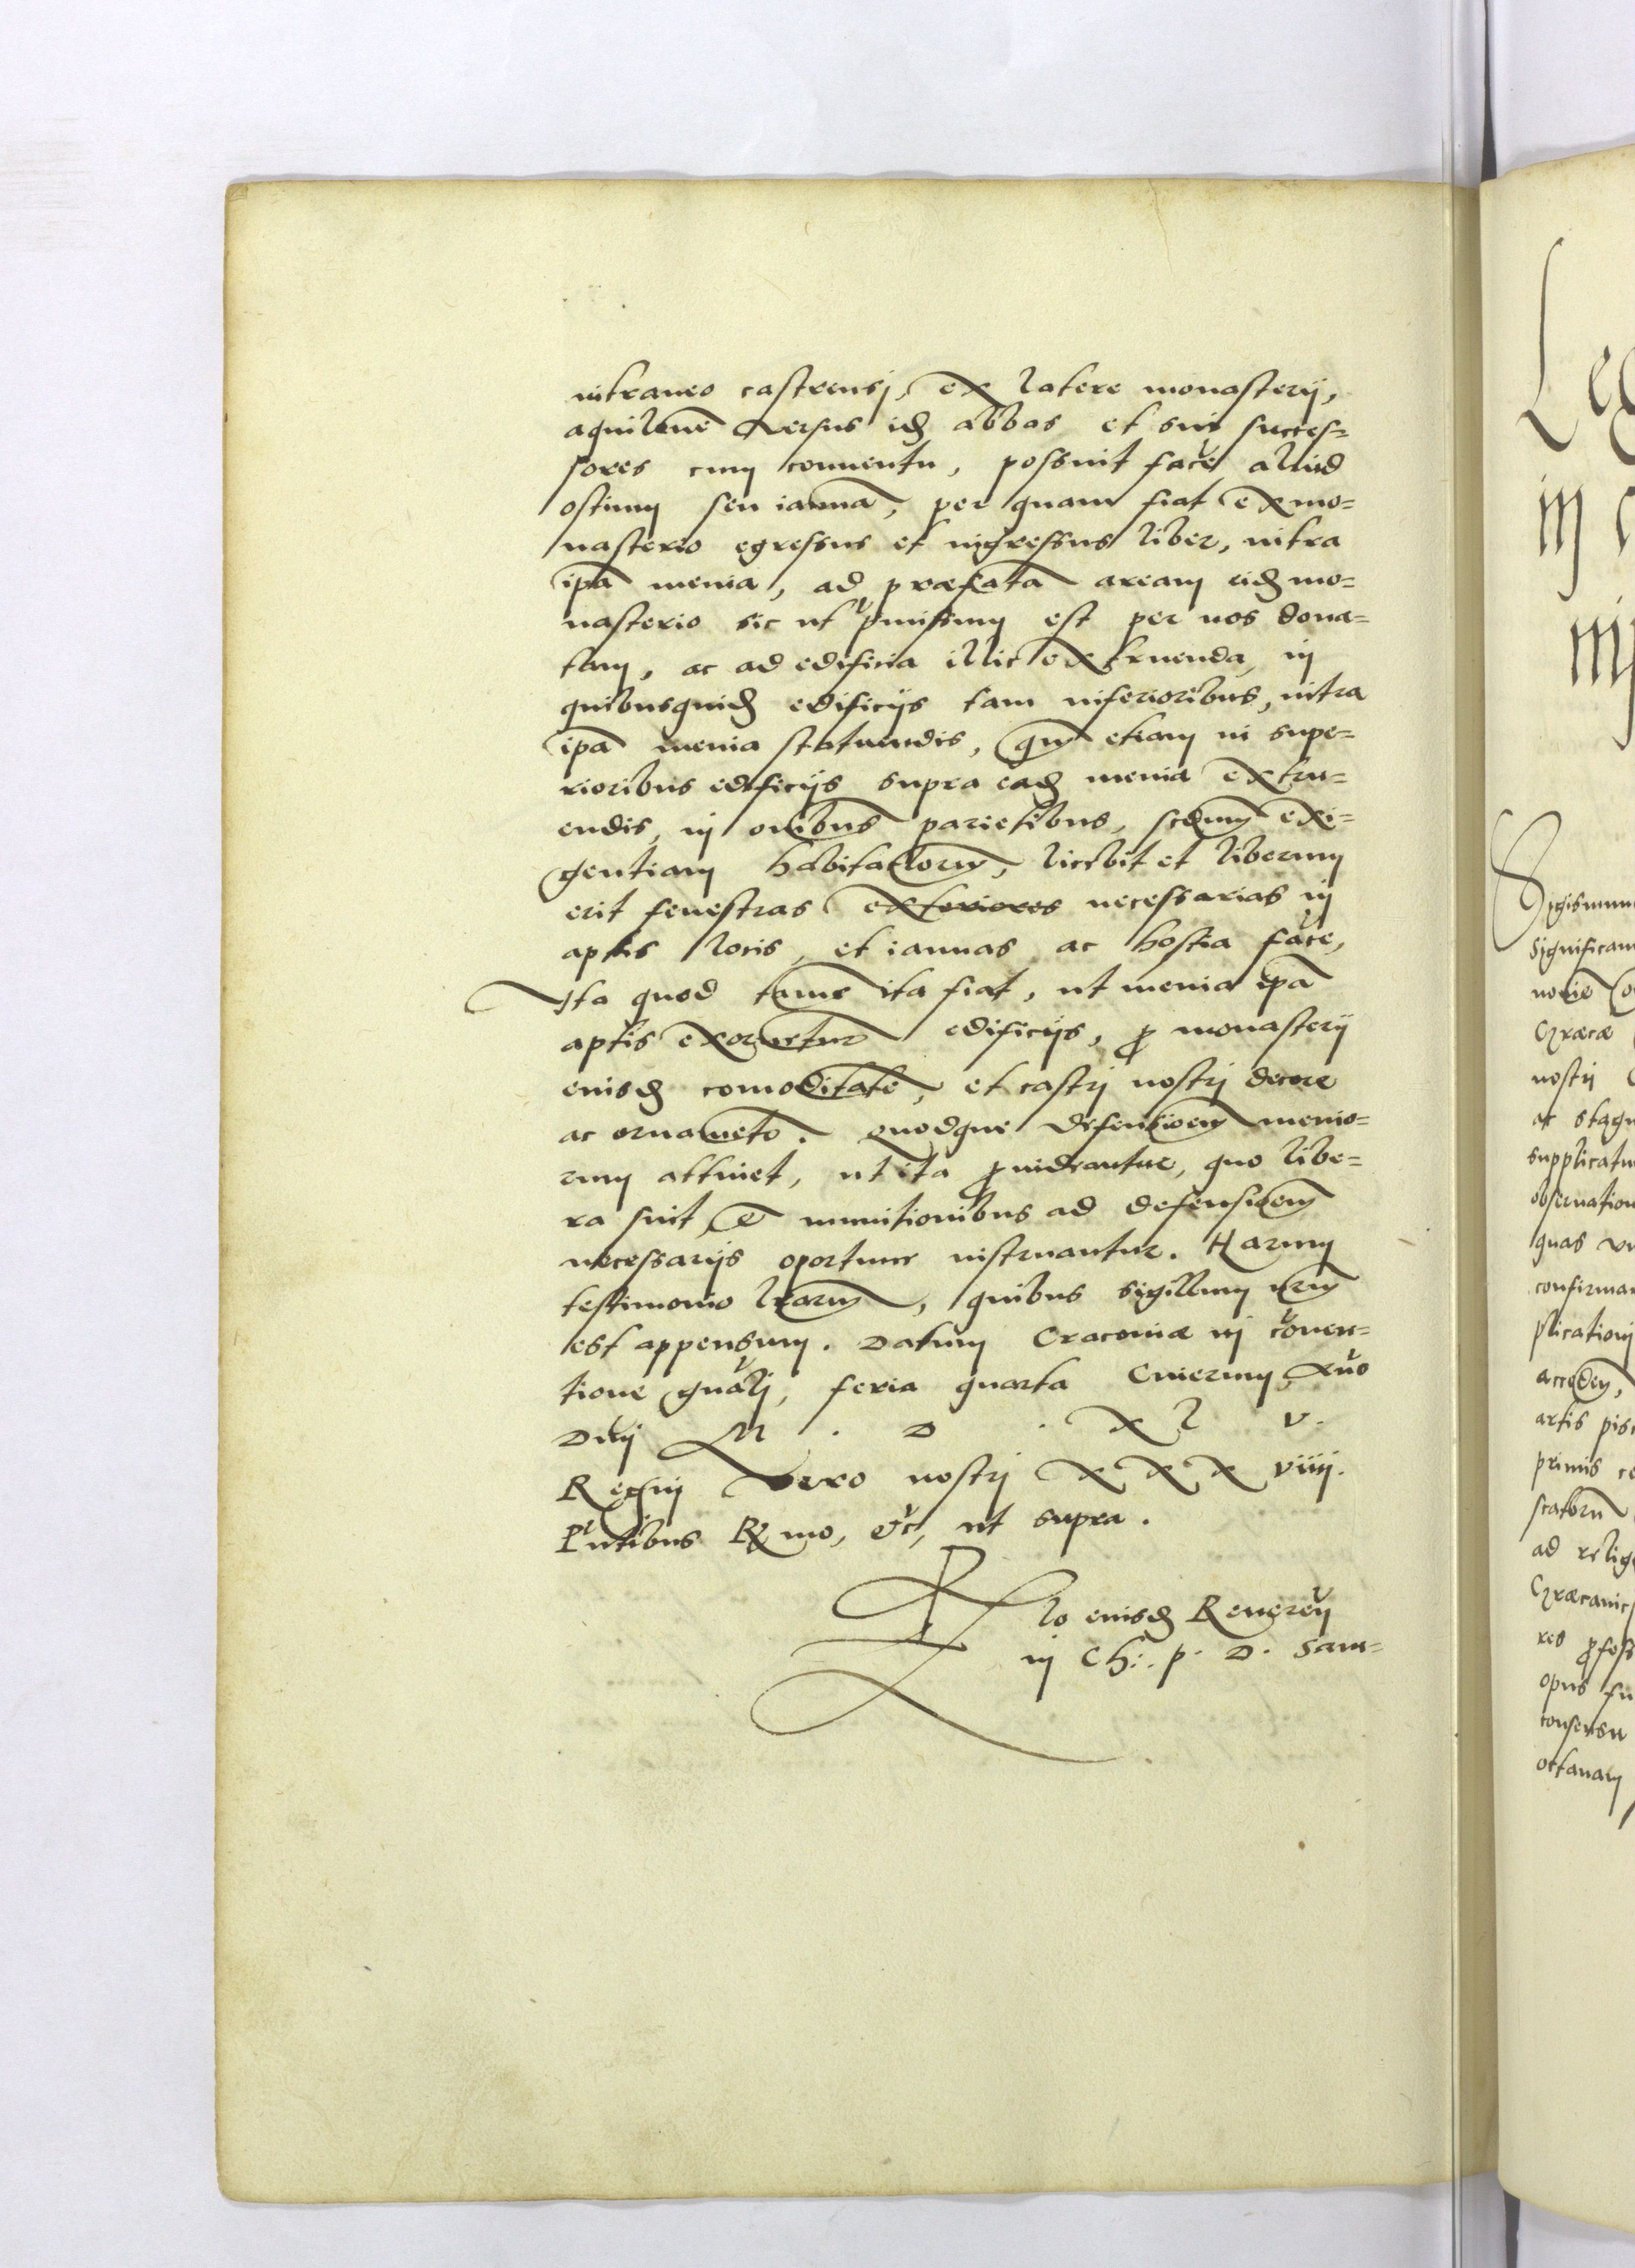 intraneo castrensj, ex latere monasterij,
aquilonē versus idē abbas et suis succes=
sores cum conuentu, possint facē aliud
ostium seu ianuā, per quam fiat ex mo=
nasterio egressus et ingressus liber, intra
ipā menia, ad præfatā aream eidē mo=
nasterio sic ut pmissum est per nos dona=
tam, ac ad edificia illic extruenda, in
quibusquidē edificijs tam inferioribus, intra
ipā menia statuendis, qm̄ etiam in supe=
rioribus edificijs supra eadē menia extru=
endis, in oībus parietibus, scdum exi=
gentiam habitatorū, licebit et liberum
erit fenestras exteriores necessarias in
aptis locis, et ianuas ac hostia facē,
Ita quod tamē ita fiat, ut menia ipā
aptis exornētur edificijs, p monasterij
eiusdē comoditate, et castrj nostrj decore
ac ornamēto. Quodque defensionem menio=
rum attinet, ut ita puideantur, quo libe=
ra sint, & munitionibus ad defensionem
necessarijs oportune instruantur. Harum
testimonio lrarum, quibus sigillum nrum
est appensum. Datum Cracouiæ in conuen=
tione gnalj, feria quarta Cinerum, Anno
Dnj M . D . X L V.
Regnj vero nostrj X X X viiij.
Pntibus Rmo, &c, ut supra.
Rlo eiusdē Reueren
in Ch: p. D. Sam=
Leg
in
in
Sigismun
Significam
Græcæ
nostrj
ac stagn
supplicatu
obseruation
quas
confirmar
plicationj
acceden,
artis pis
primis ce
scatoru
ad relig
Græcanic
res pfess
opus fu
consensu
octauam